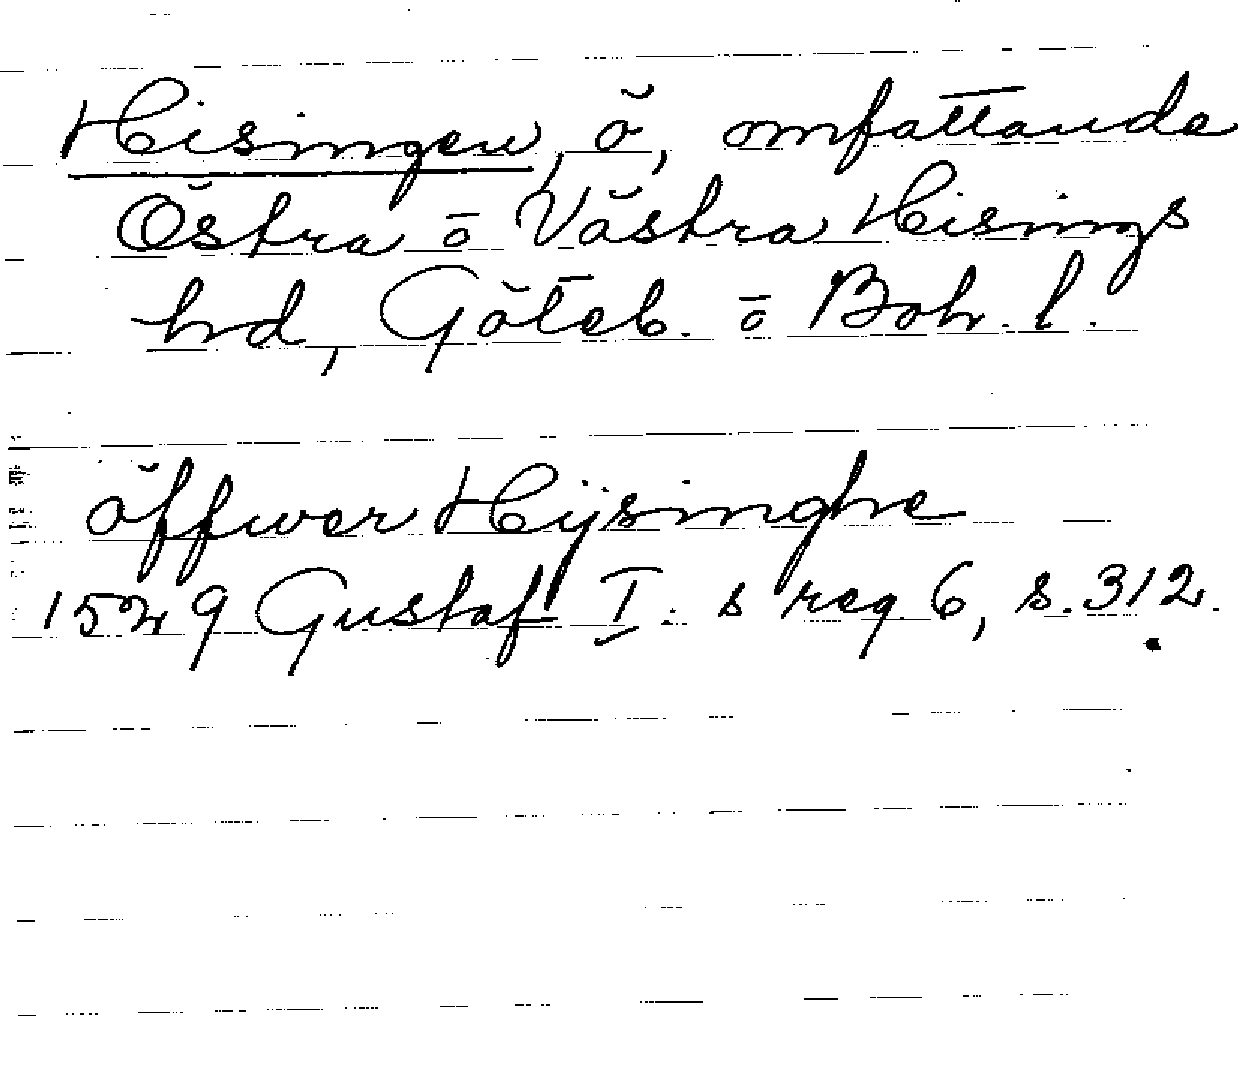 Hisingen, ö, omfattande
Östra o Västra Hisings
hd, Göteb. o Boh. l.
öffwer Hijsinghe
1529 Gustaf I:s reg 6, s. 312.